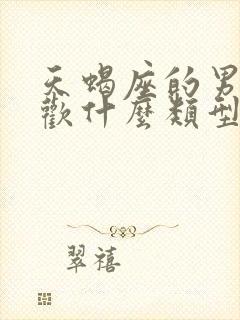 天蝎座的男
歡什麼類型
翠禧